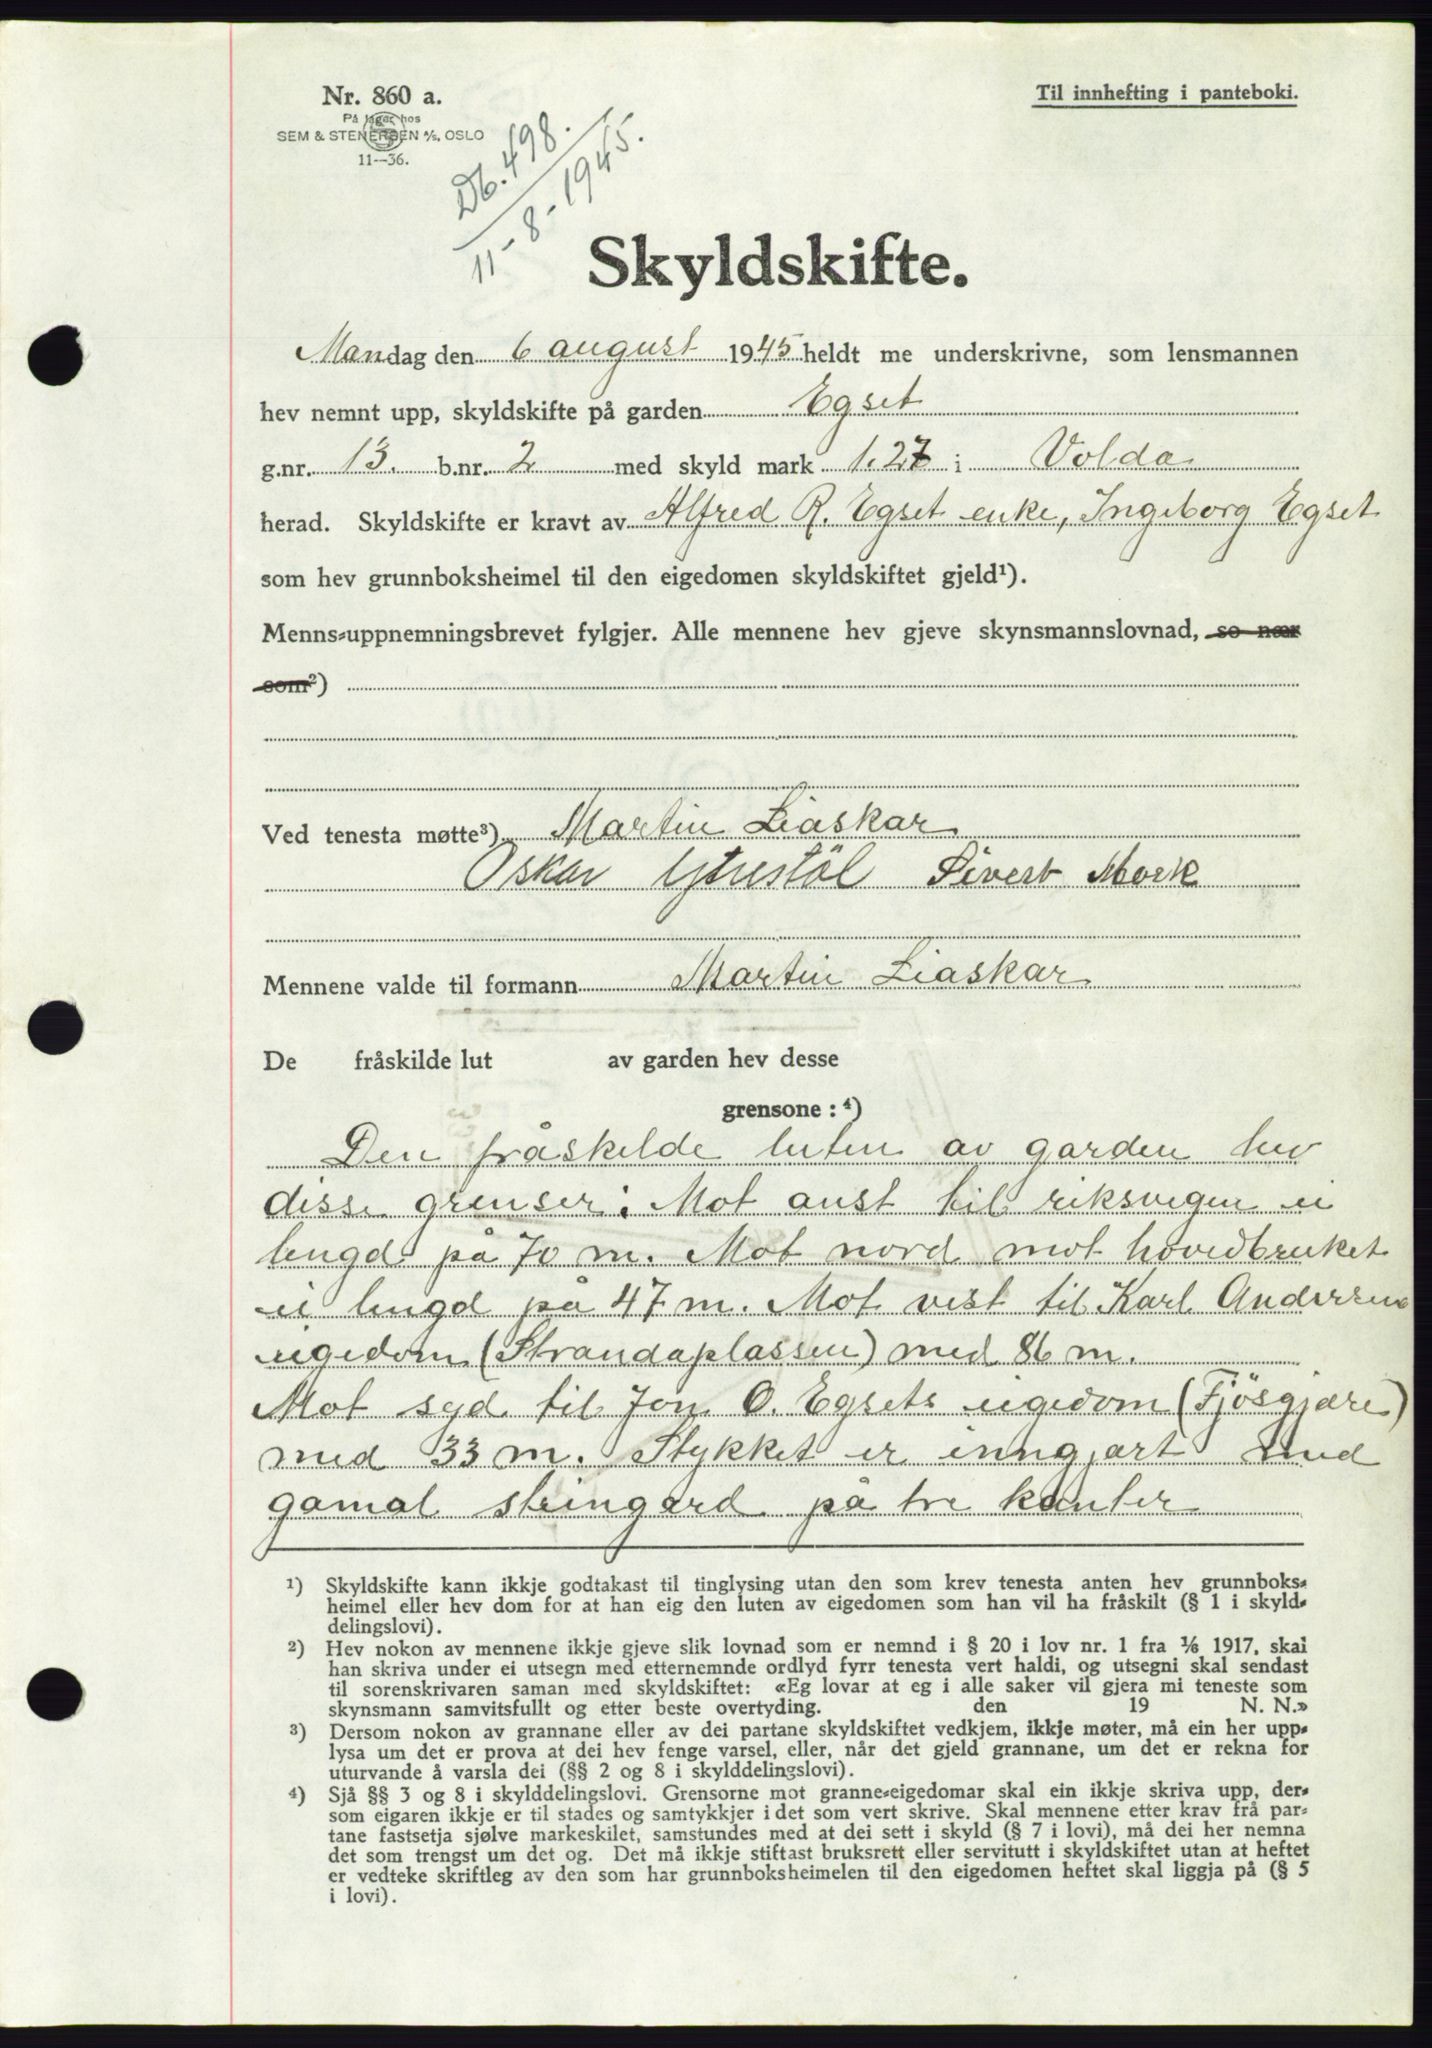 Nr. 860 a.
På lager hos
SEM & STENERSEN A/S, OSLO
11—36.
Til innhefting i panteboki.
Db. 498.
11-8-1945.
Skyldskifte.
Mandag den 6 august 1945 heldt me underskrivne, som lensmannen
hev nemnt upp, skyldskifte på garden Egset
g.nr. 13. b.nr. 2 med skyld mark 1.27 i Volda
herad. Skyldskifte er kravt av Alfred R. Egset enke, Ingeborg Egset
som hev grunnboksheimel til den eigedomen skyldskiftet gjeld¹).
Menns-uppnemningsbrevet fylgjer. Alle mennene hev gjeve skynsmannslovnad, so nær
som²)
Ved tenesta møtte³) Martin Liaskar
Oskar Ytrestöl Sivert Mork
Mennene valde til formann Martin Liaskar
De fråskilde lut av garden hev desse
grensone : ⁴)
Den fråskelde luten av garden hev
disse grenser: Mot aust til riksvegen ei
lengd på 70 m. Mot nord mot hovedbruket
ei lengd på 47 m. Mot vest til Karl Andersens
eigedom (Strandaplassen) med 86 m.
Mot syd til Jon O. Egsets eigedom (Fjösgjære)
med 33 m. Stykket er inngjært med
gamal steingard på tre kanter
¹) Skyldskifte kann ikkje godtakast til tinglysing utan den som krev tenesta anten hev grunnboks-
heimel eller hev dom for at han eig den luten av eigedomen som han vil ha fråskilt (§ 1 i skyld-
delingslovi).
²) Hev nokon av mennene ikkje gjeve slik lovnad som er nemnd i § 20 i lov nr. 1 fra 1/6 1917, skal
han skriva under ei utsegn med etternemnde ordlyd fyrr tenesta vert haldi, og utsegni skal sendast
til sorenskrivaren saman med skyldskiftet: «Eg lovar at eg i alle saker vil gjera mi teneste som
skynsmann samvitsfullt og etter beste overtyding. den 19 N. N.»
³) Dersom nokon av grannane eller av dei partane skyldskiftet vedkjem, ikkje møter, må ein her upp-
lysa um det er prova at dei hev fenge varsel, eller, når det gjeld grannane, um det er rekna for
uturvande å varsla dei (§§ 2 og 8 i skylddelingslovi).
⁴) Sjå §§ 3 og 8 i skylddelingslovi. Grensorne mot granne-eigedomar skal ein ikkje skriva upp, der-
som eigaren ikkje er til stades og samtykkjer i det som vert skrive. Skal mennene etter krav frå par-
tane fastsetja sjølve markeskilet, samstundes med at dei sett i skyld (§ 7 i lovi), må dei her nemna
det som trengst um det og. Det må ikkje stiftast bruksrett eller servitutt i skyldskiftet utan at heftet
er vedteke skriftleg av den som har grunnboksheimelen til den eigedomen heftet skal liggja på (§ 5
i lovi).